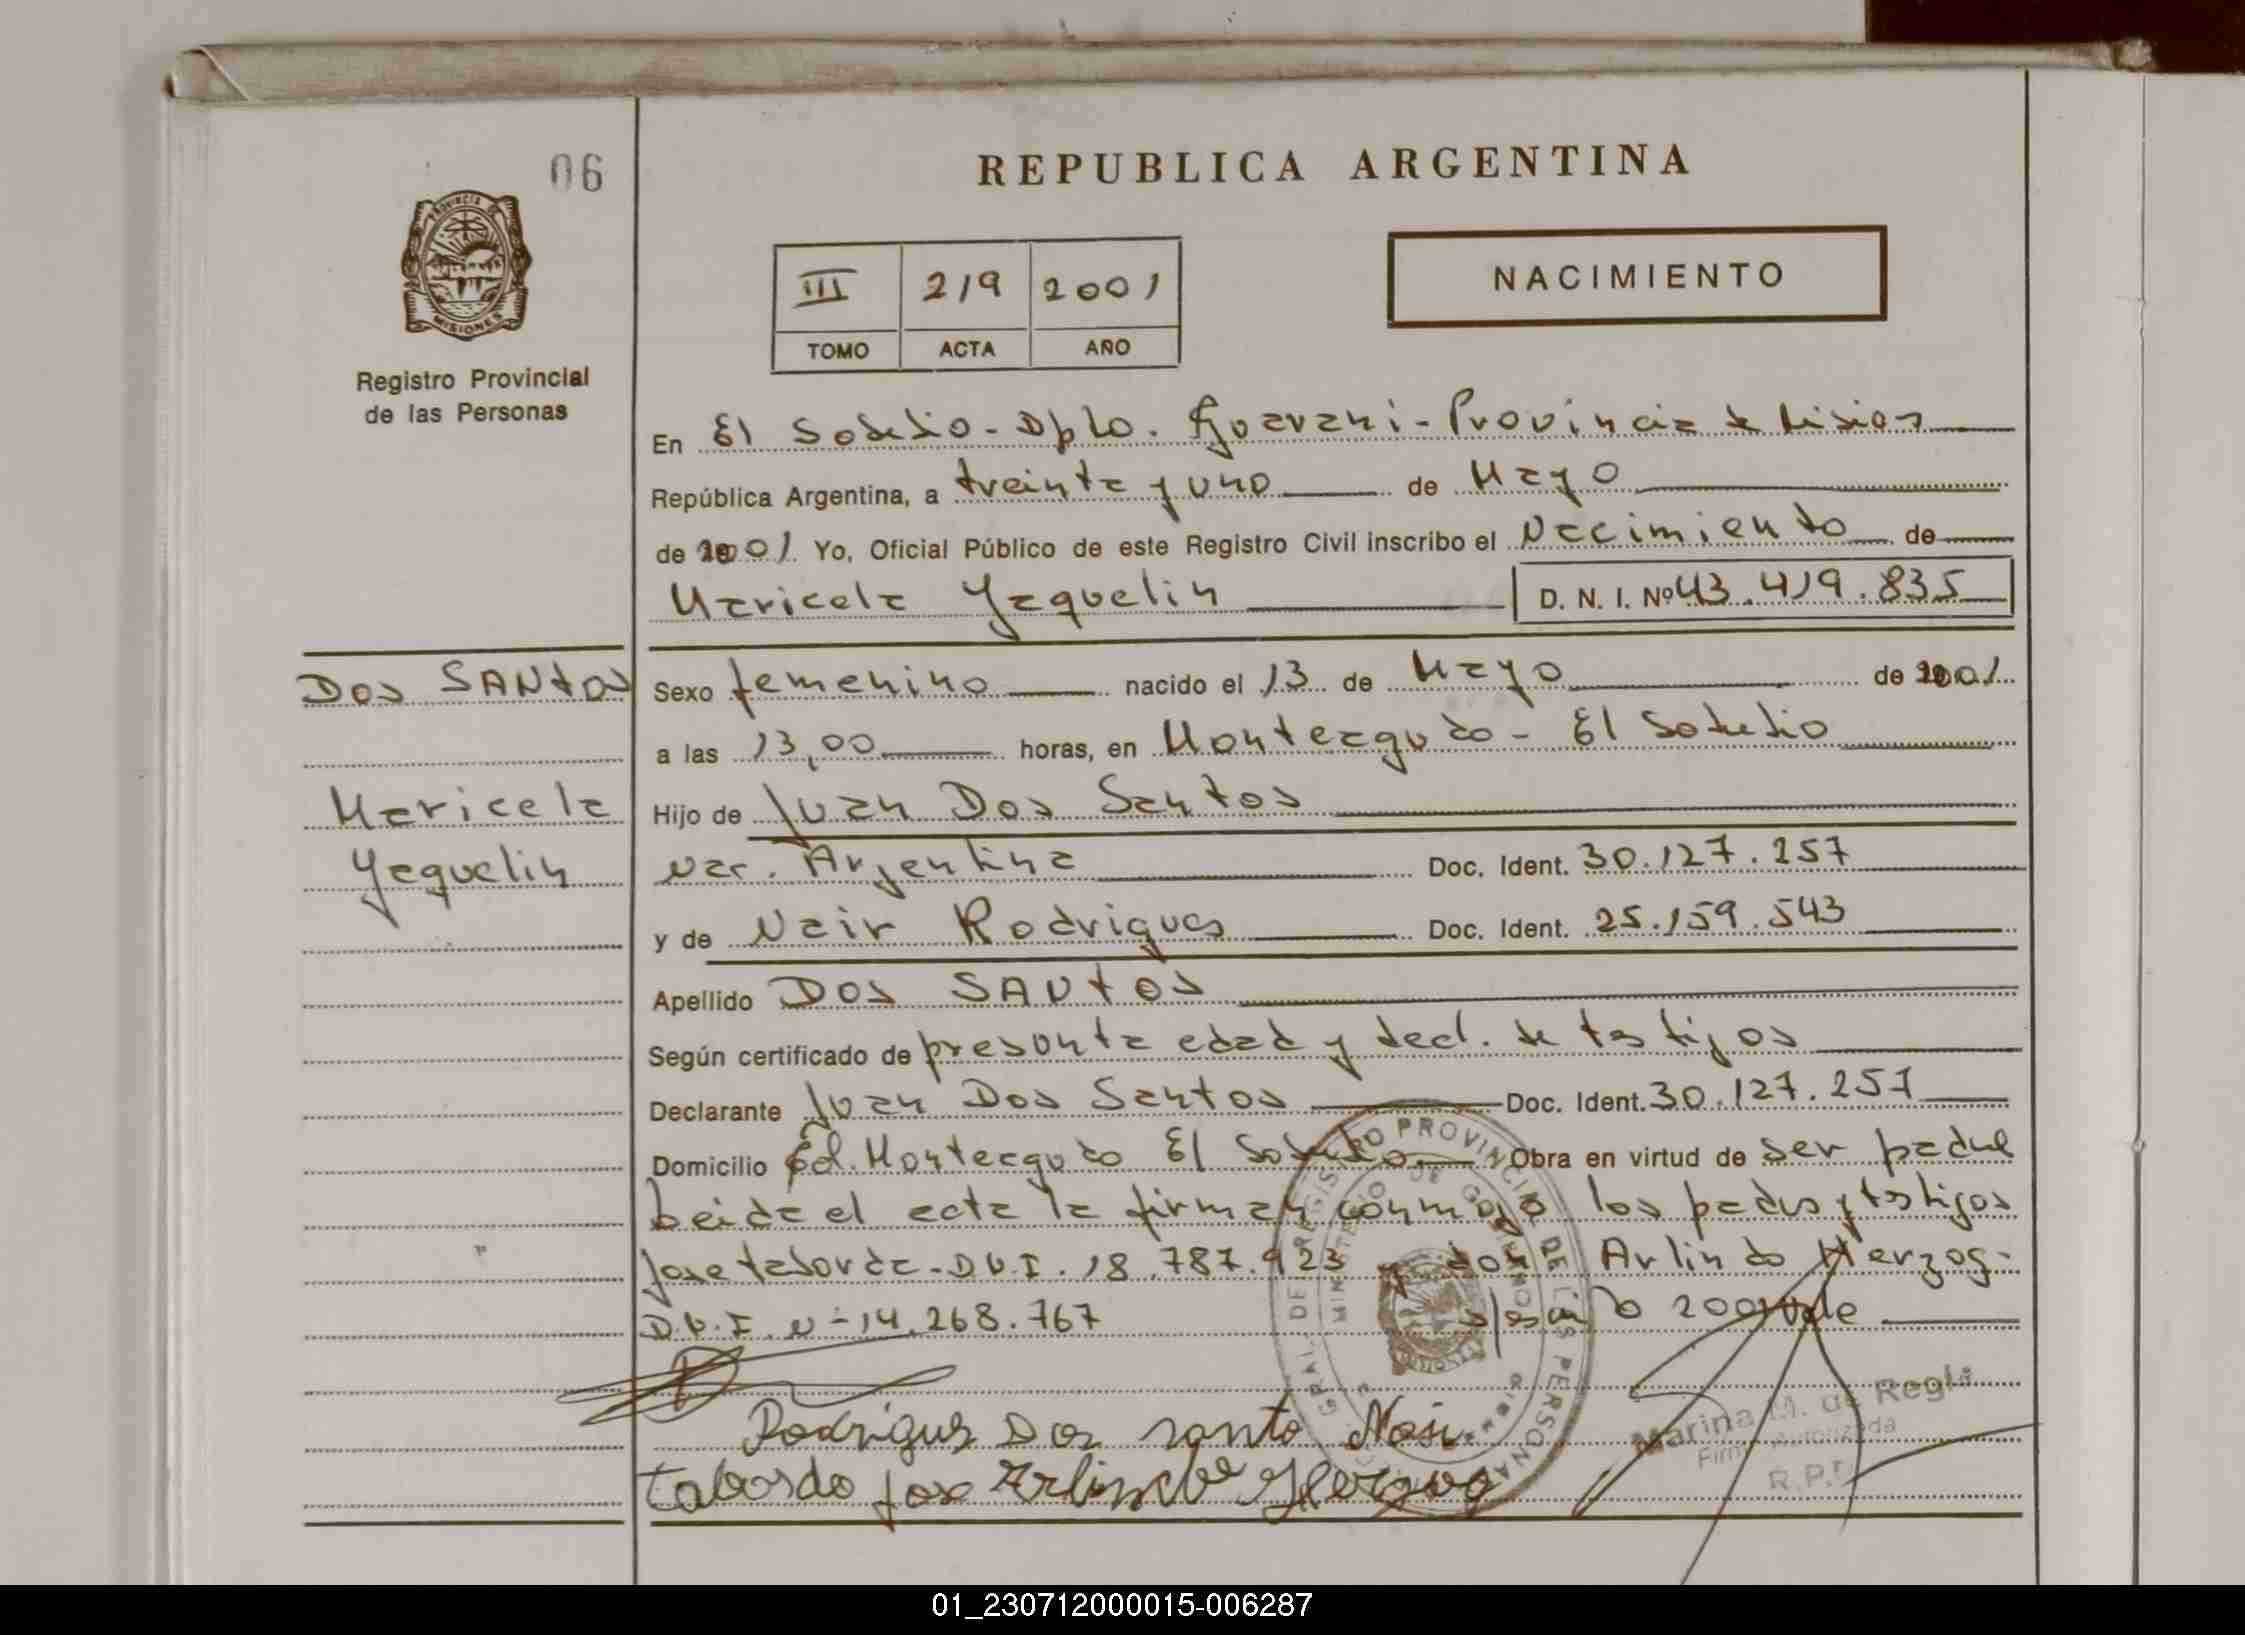 06
REPUBLICA ARGENTINA
PROVINCIA DE
MISIONES
III 219 2001
TOMO ACTA AÑO
NACIMIENTO
Registro Provincial
de las Personas
En El Soberbio - Dpto. Guarani - Provincia de Misiones
República Argentina, a treinta y uno de Mayo
de 2001 Yo, Oficial Público de este Registro Civil inscribo el Nacimiento de
Maricela Yaquelin D. N. I. Nº 43.419.835
DOS SANtOS
Maricela
Yaquelin
Sexo femenino nacido el 13 de Mayo de 2001
a las 13,00 horas, en Monteagudo - El Soberbio
Hijo de Juan Dos Santos
Nac. Argentina Doc. Ident. 30.127.257
y de Nair Rodrigues Doc. Ident. 25.159.543
Apellido DOS SANtOS
Según certificado de presunta edad y decl. de testigos
Declarante Juan Dos Santos Doc. Ident. 30.127.257
Domicilio Col. Monteagudo El Soberbio Obra en virtud de ser padre
Leida el acta la firman conmigo los padres y testigos
Jose Taborda - D.N.I. 18.787.923 y don Arlindo Herzog -
D.N.I. N- 14.268.767 2001 vale
Rodrigues Dos santo
tabordo jose Arlindo
Marina M. de Regis
Firma Autorizada
R.P.
GRAL. DE REGISTRO PROVINCIAL DE LAS PERSONAS
MINISTERIO DE GOBIERNO
01_230712000015-006287